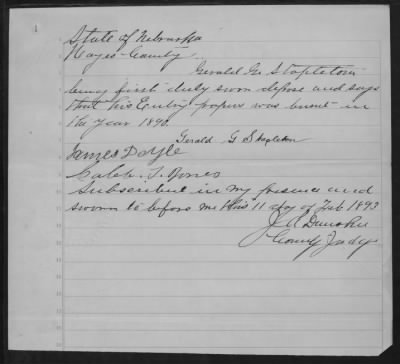 1
State of Nebraska
Hayes County
Gerald G. Stapleton
being first duly sworn depose and says
that his Entry papers was burnt in
the year 1890.
Gerald G Stapleton
James Doyle
Caleb. T. Jones
Subscribed in my presence and
sworn to before me this 11 day of Feb 1893
J A
County Judge